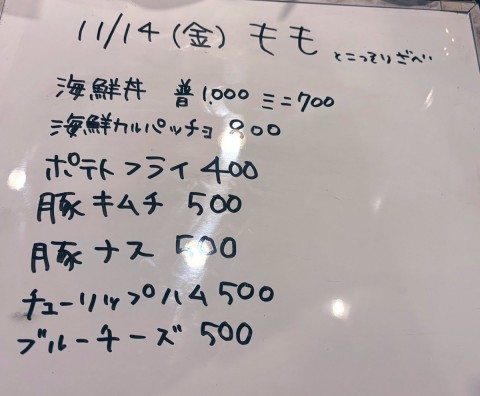 11/14(金) もも とこっそりざべい
海鮮丼 普1,000 ミニ700
海鮮カルパッチョ 800
ポテトフライ 400
豚キムチ 500
豚ナス 500
チューリップハム 500
ブルーチーズ 500